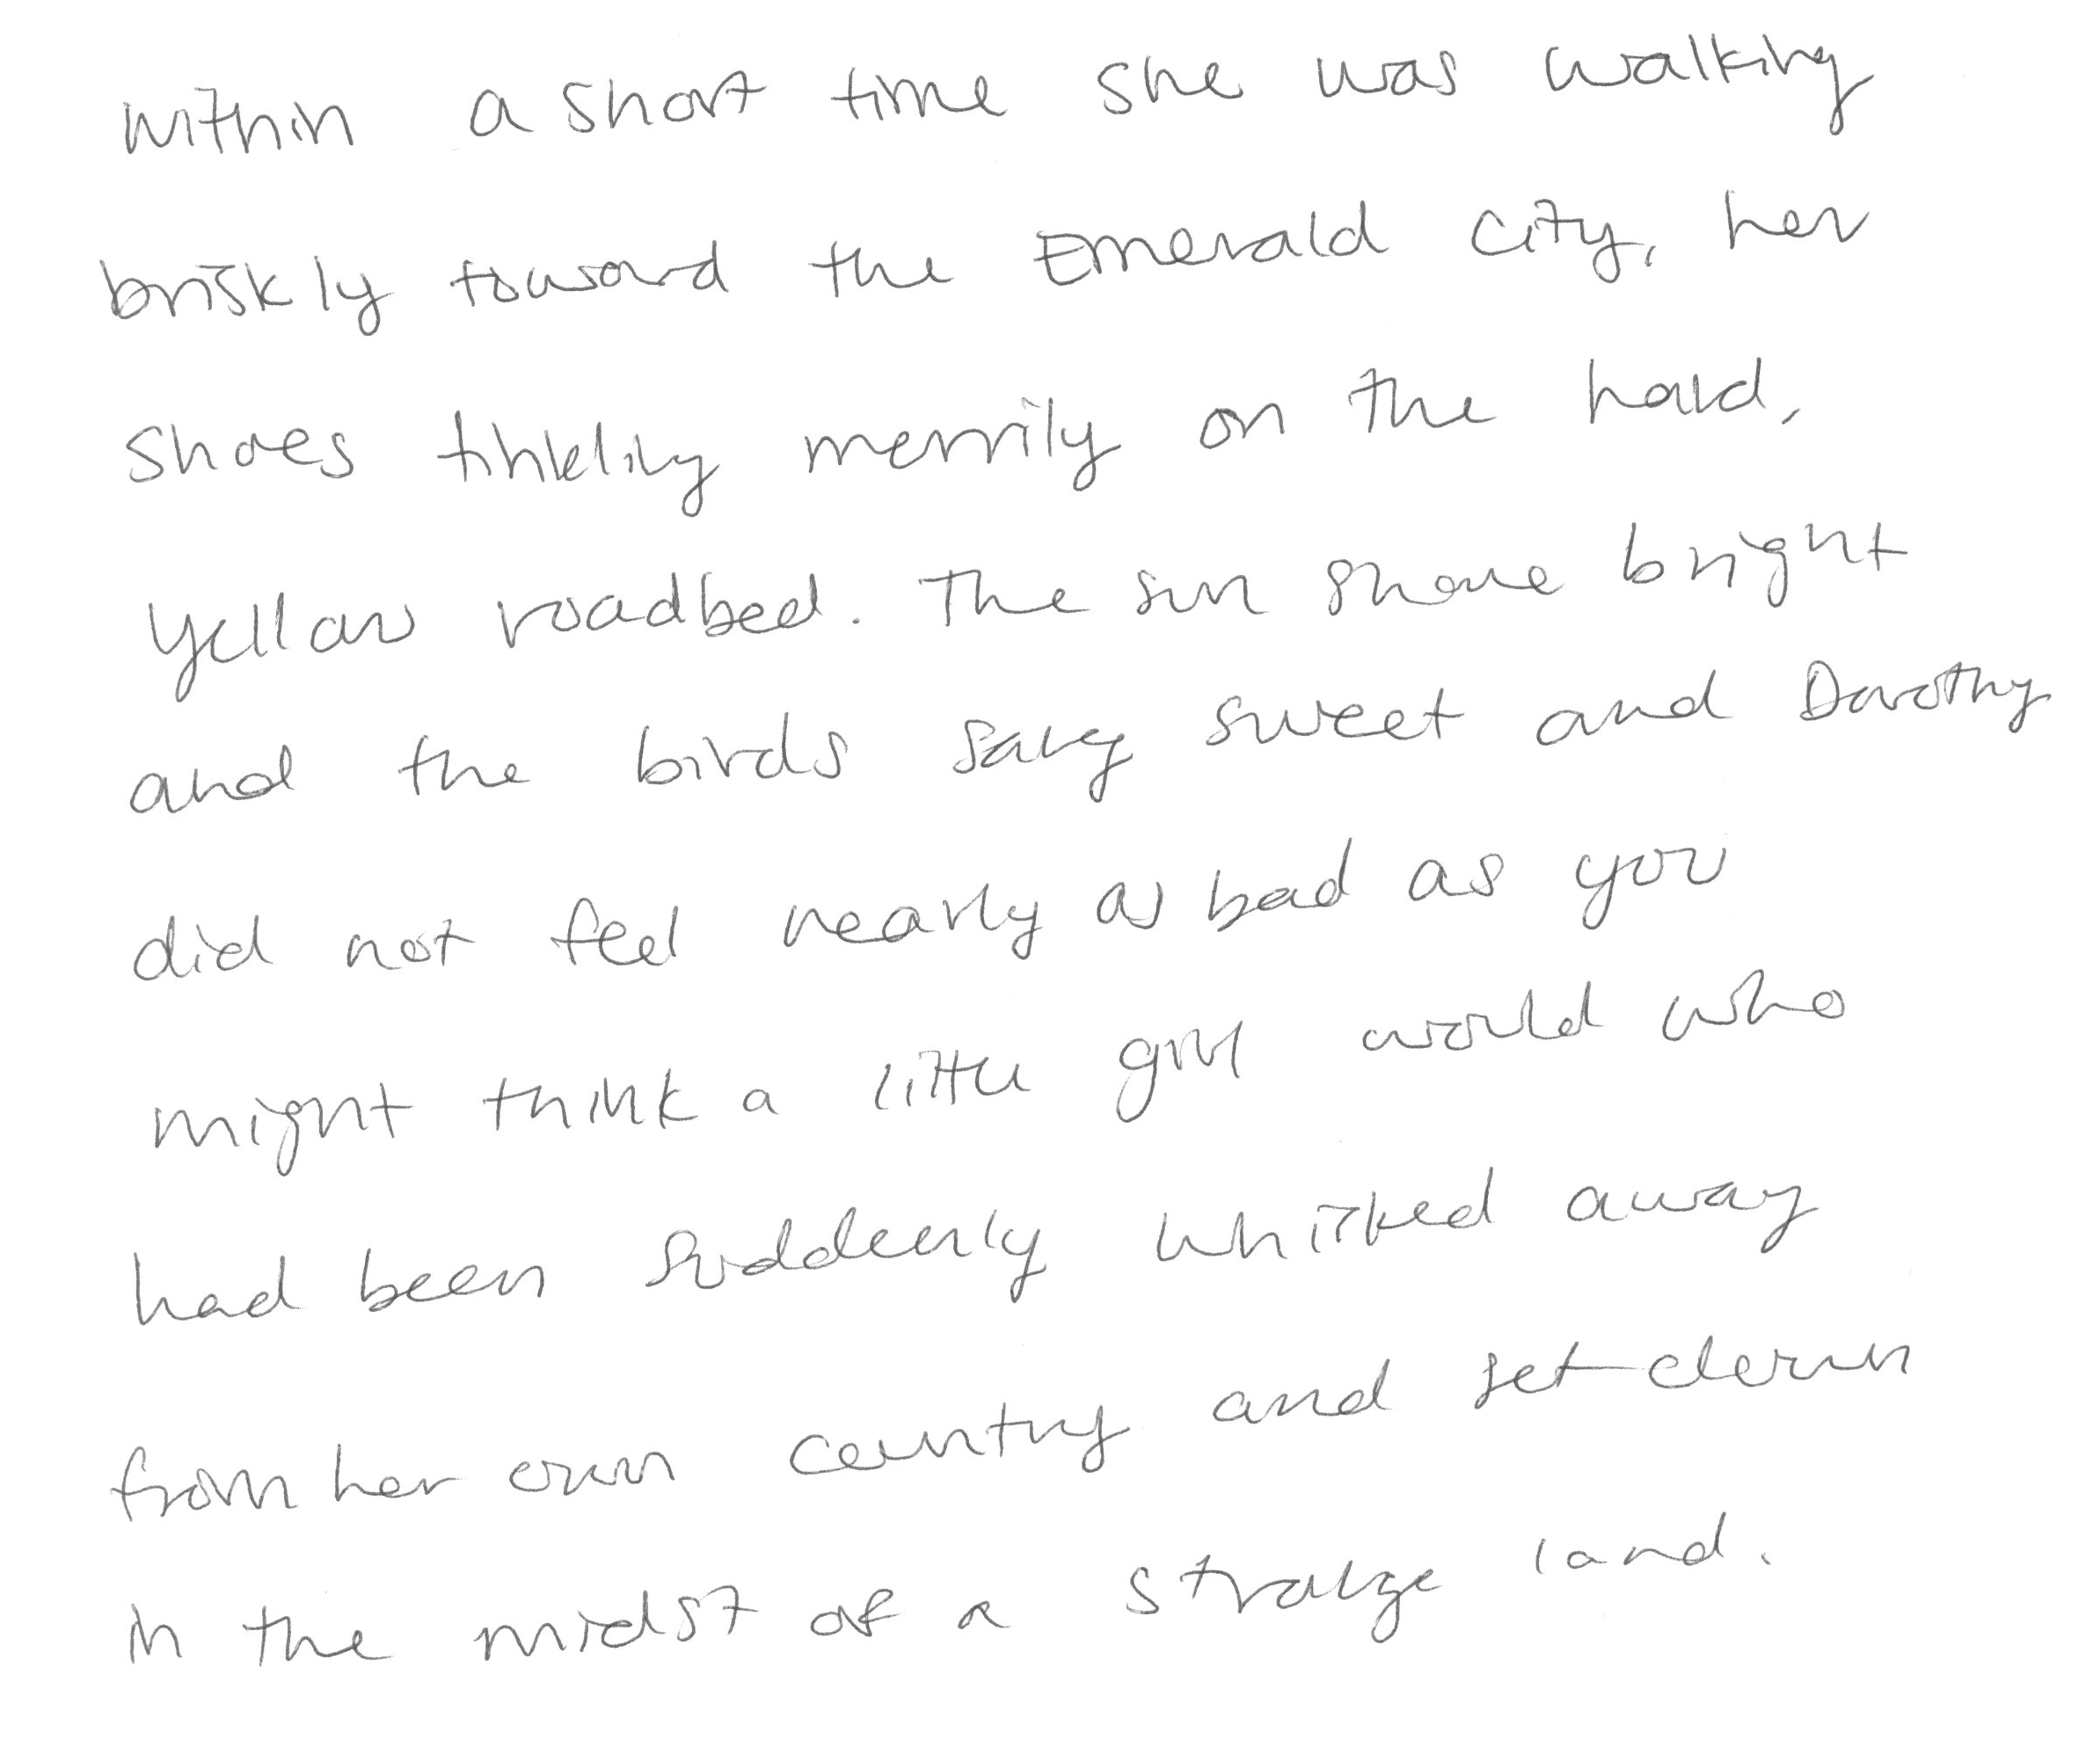 within a short time she was walking
briskly toward the Emerald City, her
shoes tinkling merrily on the hard,
yellow roadbed. The sun shone bright
and the birds sang sweet and Dorothy
did not feel nearly as bad as you
might think a little girl would who
had been suddenly whisked away
from her own country and set down
in the midst of a strange land.